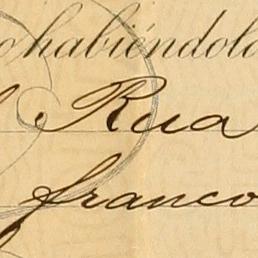 o habiéndola
Rua
franco